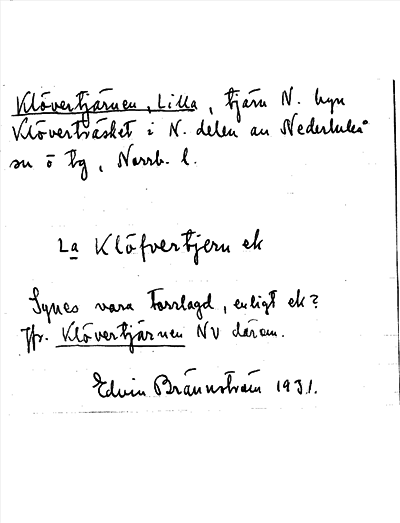 Klövertjärnen, Lilla, tjärn N. byn
Klöverträsket i N. delen av Nederluleå
sn o tg, Norrb. l.
La Klöfvertjern ek
Synes vara torrlagd, enligt ek?
Jfr. Klövertjärnen NV därom.
Edvin Brännström 1931.